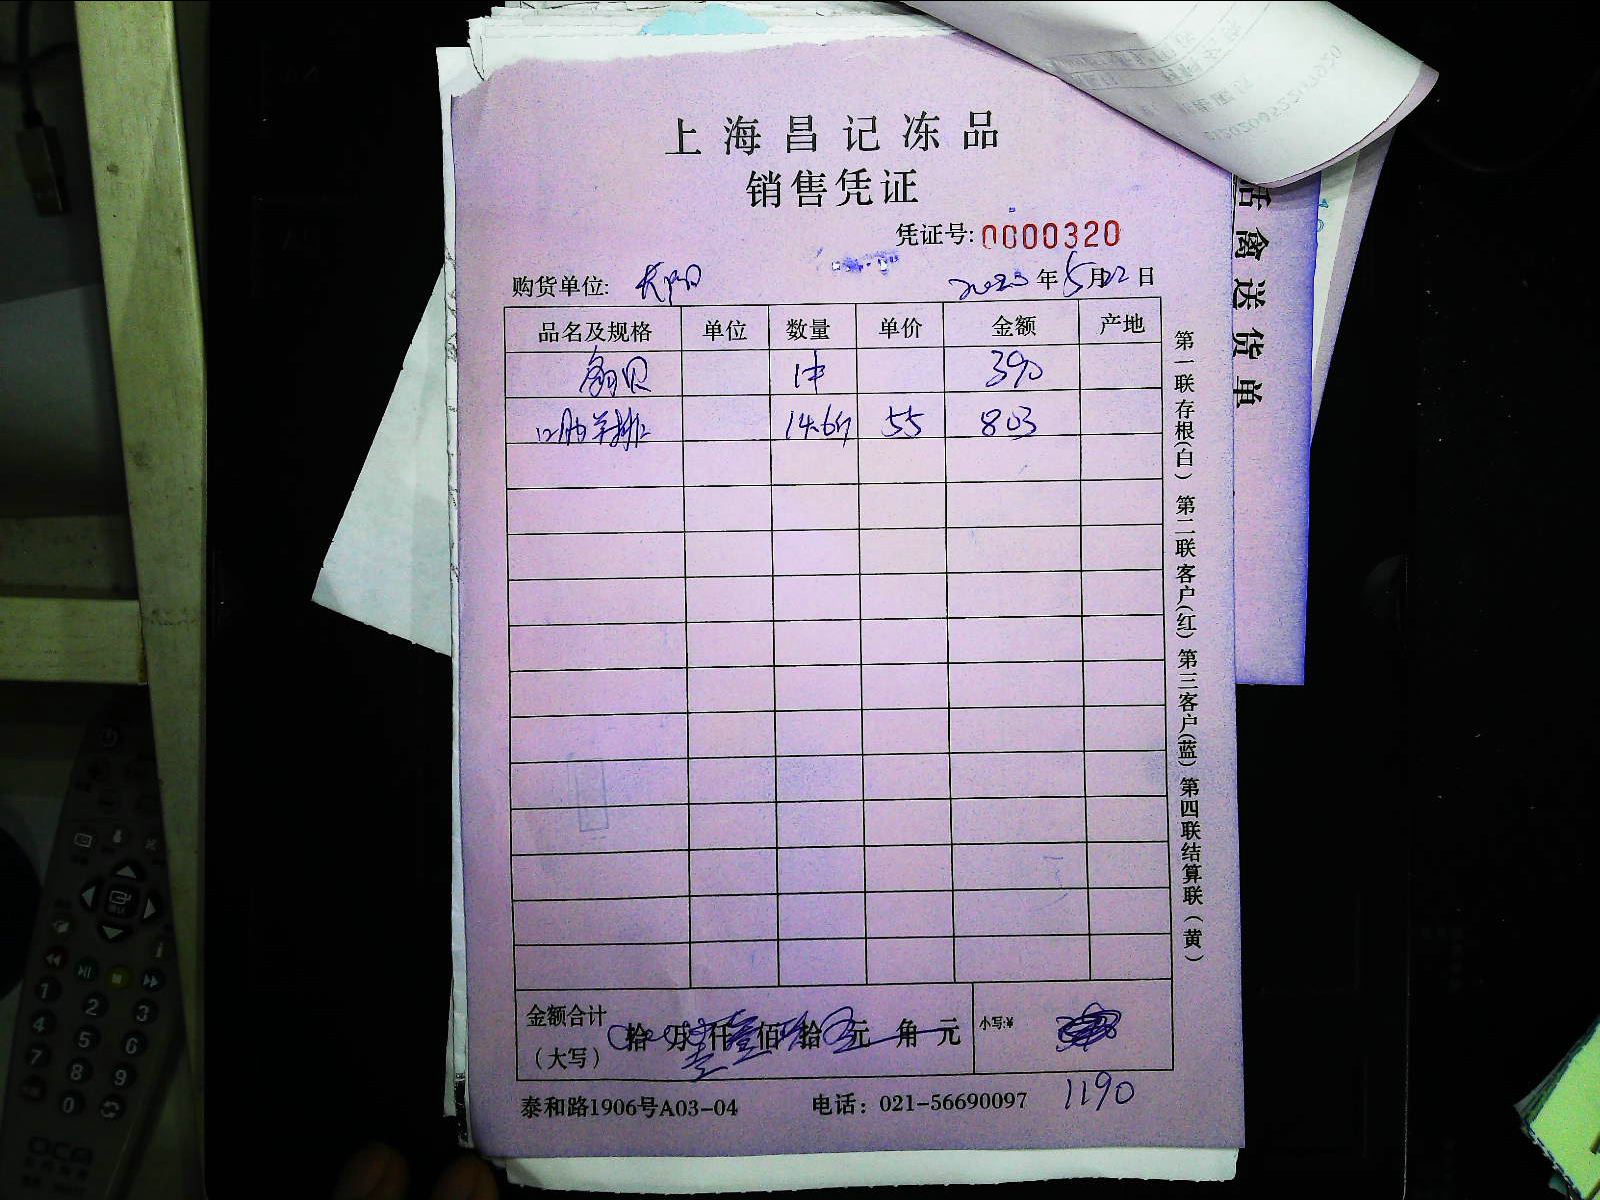 上海昌记冻品
销售凭证
凭证号: 0000320
购货单位: 2023年5月22日
品名及规格 单位 数量 单价 金额 产地
扇贝 1件 390
羊排 14.6斤 55 803
金额合计（大写） 拾 万 仟 佰 拾 元 角 元 小写:¥
1190
泰和路1906号A03-04 电话：021-56690097
第一联存根(白) 第二联客户(红) 第三客户(蓝) 第四联结算联(黄)
活禽送货单